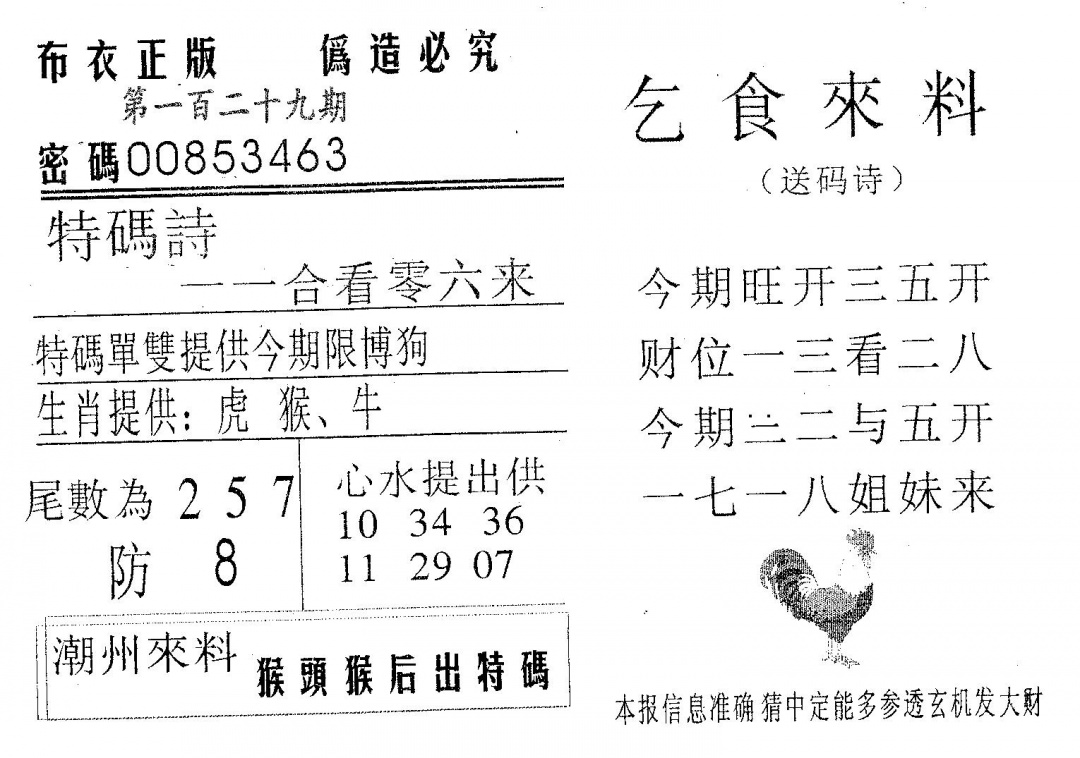 布衣正版 僞造必究
第一百二十九期
密碼00853463
特碼詩
一一合看零六来
特碼單雙提供今期限博狗
生肖提供：虎 猴、牛
尾數為 2 5 7
防 8
心水提出供
10 34 36
11 29 07
潮州來料 猴頭猴后出特碼
乞食來料
（送码诗）
今期旺开三五开
财位一三看二八
今期二与五开
一七一八姐妹来
本报信息准确猜中定能多参透玄机发大财